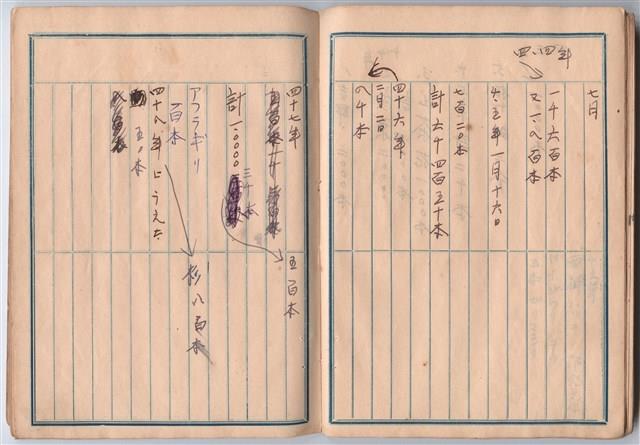 四、四年
七月
一千六百本
又一、八百本
四、五年一月十六日
七百二〇本
計六千四百五十本
四十六年
二月二日
八千本
四十七年
五百本
計一、〇〇〇〇
三千本
アブラギリ
一百本
四十八年にうえた
杉八百本
五〇本